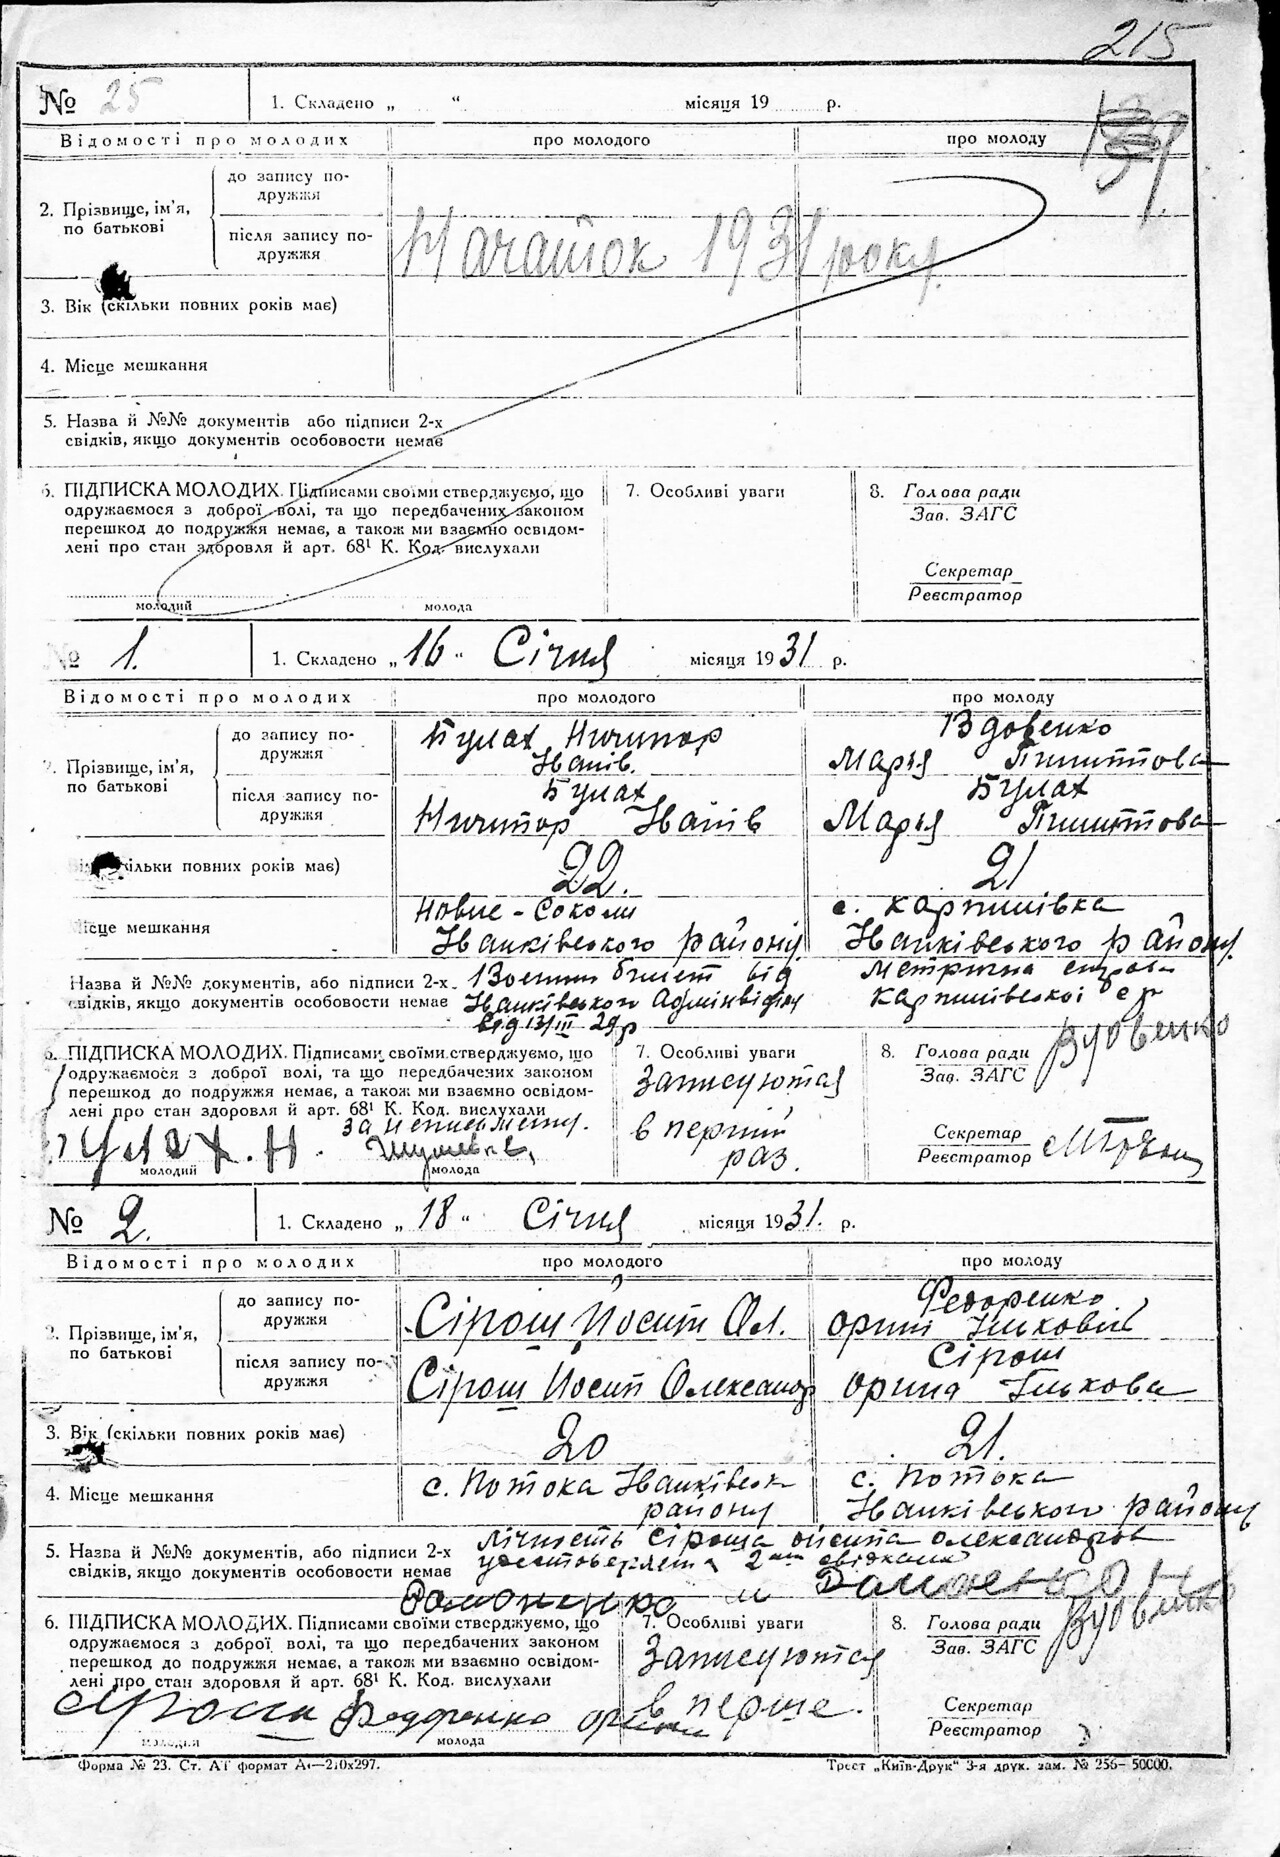 215
№ 25 1. Складено „ “ місяця 19 р.
Відомості про молодих про молодого про молоду
2. Прізвище, ім’я, по батькові
до запису по-
дружжя
після запису по-
дружжя
Начаток 1931 року
3. Вік (скільки повних років має)
4. Місце мешкання
5. Назва й №№ документів або підписи 2-х
свідків, якщо документів особовости немає
6. ПІДПИСКА МОЛОДИХ. Підписами своїми стверджуємо, що
одружаємося з доброї волі, та що передбачених законом
перешкод до подружжя немає, а також ми взаємно освідом-
лені про стан здоровля й арт. 68¹ К. Код. вислухали
молодий молода
7. Особливі уваги
8. Голова ради
Зав. ЗАГС
Секретар
Реєстратор
№ 1. 1. Складено „16“ Січня місяця 1931 р.
Відомості про молодих про молодого про молоду
2. Прізвище, ім’я,
по батькові
до запису по-
дружжя
Булах Ничипор
Іванів.
Вдовенко
Марья
після запису по-
дружжя
Булах
Ничипор Іванів
Булах
Марья
кільки повних років має) 22. 21
ісце мешкання
Новие-Соколи
Іванківського району
с. Карпилівка
Іванківського району.
Назва й №№ документів, або підписи 2-х
свідків, якщо документів особовости немає
Воєнни билет від
Іванківського
від 13/III 29р
Метрична
Карпилівської с/р
6. ПІДПИСКА МОЛОДИХ. Підписами своїми стверджуємо, що
одружаємося з доброї волі, та що передбачених законом
перешкод до подружжя немає, а також ми взаємно освідом-
лені про стан здоровля й арт. 68¹ К. Код. вислухали
Булах. Н.
за неписьменну.
молодий молода
7. Особливі уваги
Записуютса
в перший
раз.
8. Голова ради
Зав. ЗАГС
Вдовенко
Секретар
Реєстратор
№ 2. 1. Складено „18“ Січня місяця 1931. р.
Відомості про молодих про молодого про молоду
2. Прізвище, ім’я,
по батькові
до запису по-
дружжя
Сірош Йосип Ол.
Федоренко
після запису по-
дружжя
Сірош Йосип Олександр
Сірош
Орина Ількова
3. Вік (скільки повних років має) 20 21.
4. Місце мешкання
с. Потока Іванківськ
району
с. Потока
Іванківського району
5. Назва й №№ документів, або підписи 2-х
свідків, якщо документів особовости немає
Лічность Сіроша Осипа Олександров
2ма свідками
и
6. ПІДПИСКА МОЛОДИХ. Підписами своїми стверджуємо, що
одружаємося з доброї волі, та що передбачених законом
перешкод до подружжя немає, а також ми взаємно освідом-
лені про стан здоровля й арт. 68¹ К. Код. вислухали
Федоренко
молодий молода
7. Особливі уваги
Записуютса
в перше.
8. Голова ради
Зав. ЗАГС
Вдовенко
Секретар
Реєстратор
Форма № 23. Ст. АТ формат А4—210х297.
Трест „Київ-Друк“ 3-я друк. зам. № 256—50000.